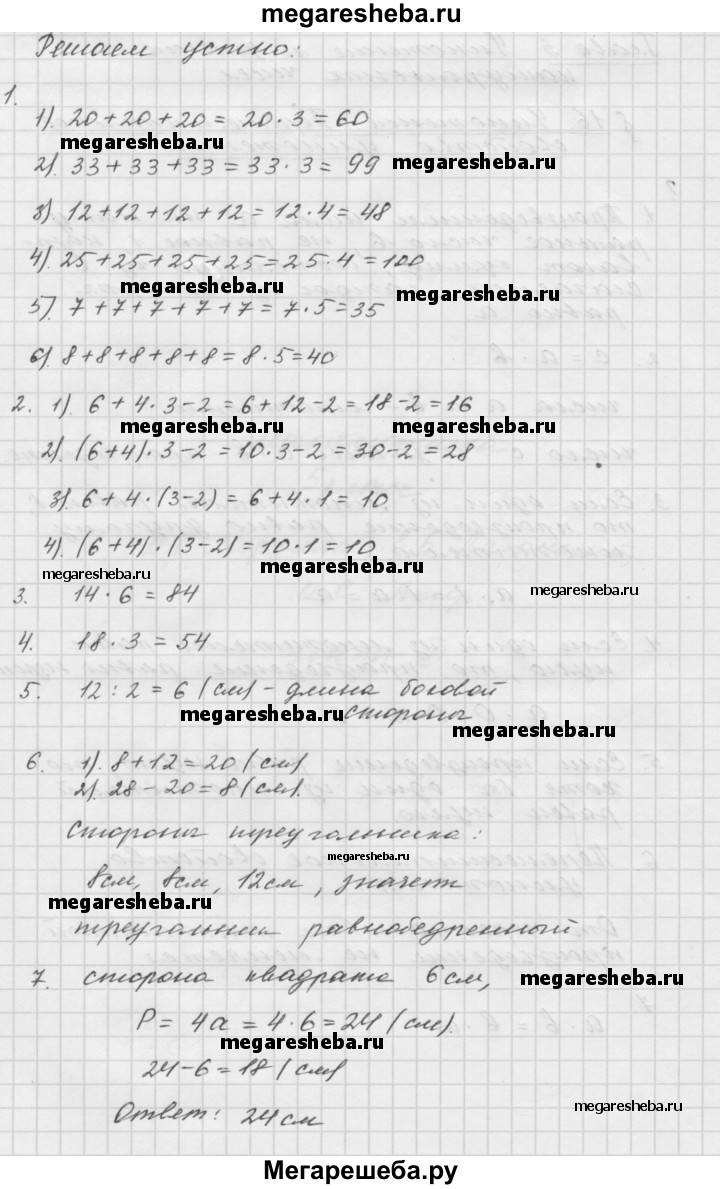 megaresheba.ru
Решаем устно:
1.
1). 20+20+20 = 20·3 = 60
megaresheba.ru
2). 33+33+33 = 33·3 = 99 megaresheba.ru
3) 12+12+12+12 = 12·4 = 48
4). 25+25+25+25 = 25·4 = 100
megaresheba.ru megaresheba.ru
5). 7+7+7+7+7 = 7·5 = 35
6). 8+8+8+8+8 = 8·5 = 40
2. 1). 6+4·3-2 = 6+12-2 = 18-2 = 16
megaresheba.ru megaresheba.ru
2). (6+4)·3-2 = 10·3-2 = 30-2 = 28
3). 6+4·(3-2) = 6+4·1 = 10
4). (6+4)·(3-2) = 10·1 = 10
megaresheba.ru megaresheba.ru
3. 14·6 = 84 megaresheba.ru
4. 18·3 = 54
5. 12:2 = 6 (см) - длина боковой
megaresheba.ru стороны megaresheba.ru
6. 1). 8+12 = 20 (см)
2). 28-20 = 8 (см).
Стороны треугольника:
megaresheba.ru
8см, 8см, 12см, значит
megaresheba.ru
треугольник равнобедренный
7. сторона квадрата 6см, megaresheba.ru
P = 4a = 4·6 = 24 (см).
megaresheba.ru
24-6 = 18 (см)
Ответ: 24см megaresheba.ru
Мегарешеба.ру